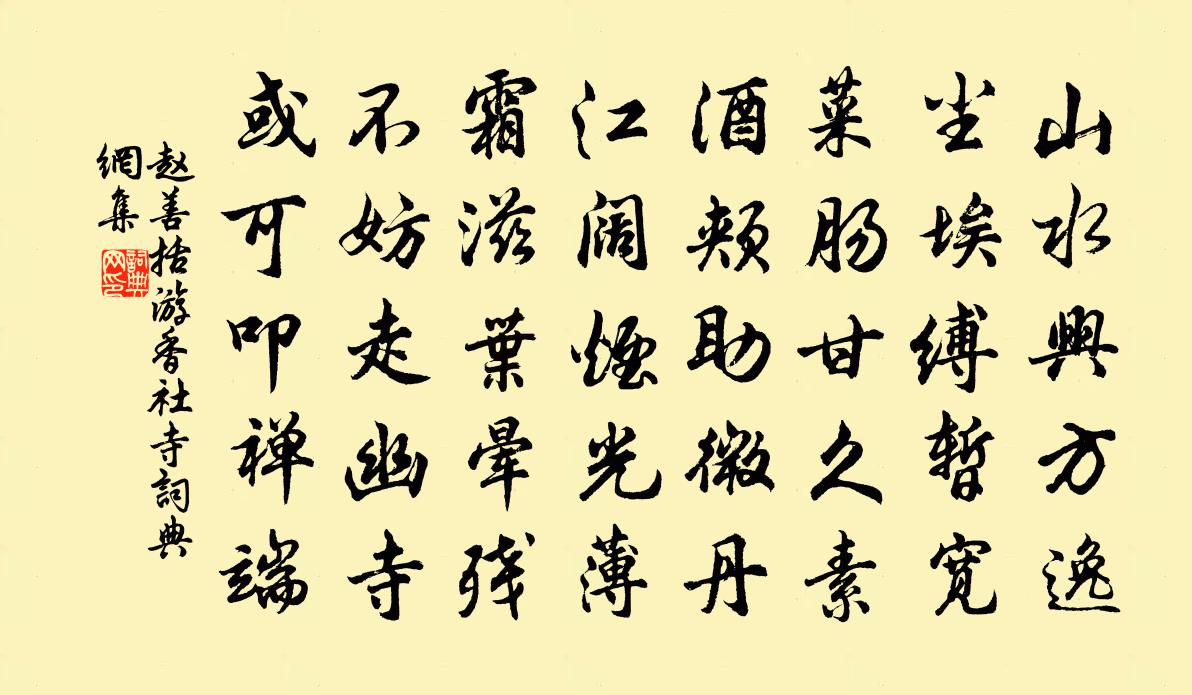 山水興方逸
尘埃缚暂宽
菜肠甘久素
酒颊助微丹
江阔煙光薄
霜滋葉晕残
不妨走幽寺
或可叩禅端
赵善括游香社寺詞典
網集
詞典网印